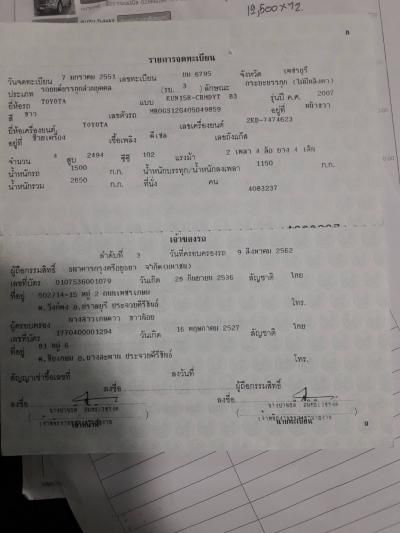 12,500×72
ก
รายการจดทะเบียน
วันจดทะเบียน 7 มกราคม 2551 เลขทะเบียน บท 6795 จังหวัด เพชรบุรี
ประเภท รถยนต์บรรทุกส่วนบุคคล (รย. 3 ) ลักษณะ กระบะบรรทุก (ไม่มีหลังคา)
ยี่ห้อรถ TOYOTA แบบ KUN15R-CRMDYT B3 รุ่นปี ค.ศ. 2007
สี ขาว เลขตัวรถ MR0GS12G405049859 อยู่ที่ หน้าขวา
ยี่ห้อเครื่องยนต์ TOYOTA เลขเครื่องยนต์ 2KD-7474623
อยู่ที่ ซ้ายเครื่อง เชื้อเพลิง ดีเซล เลขถังแก๊ส
จำนวน 4 สูบ 2494 ซีซี 102 แรงม้า 2 เพลา 4 ล้อ ยาง 4 เส้น
น้ำหนักรถ 1500 ก.ก. น้ำหนักบรรทุก/น้ำหนักลงเพลา 1150 ก.ก.
น้ำหนักรวม 2650 ก.ก. ที่นั่ง คน
4083237
เจ้าของรถ
ลำดับที่ 3 วันที่ครอบครองรถ 9 สิงหาคม 2562
ผู้ถือกรรมสิทธิ์ ธนาคารกรุงศรีอยุธยา จำกัด(มหาชน)
เลขที่บัตร 0107536001079 วันเกิด 28 กันยายน 2536 สัญชาติ ไทย
ที่อยู่ 502/14-15 หมู่ 2 ถนนเพชรเกษม
ต.วังก์พง อ.ปราณบุรี ประจวบคีรีขันธ์ โทร.
ผู้ครอบครอง
เลขที่บัตร 1770400001294 วันเกิด 16 พฤษภาคม 2527 สัญชาติ ไทย
ที่อยู่ 81 หมู่ 6
อ.บางสะพาน ประจวบคีรีขันธ์ โทร.
สัญญาเช่าซื้อเลขที่ ลงวันที่
ลงชื่อ ผู้ถือกรรมสิทธิ์
ลงชื่อ ลงชื่อ
นายทะเบียน